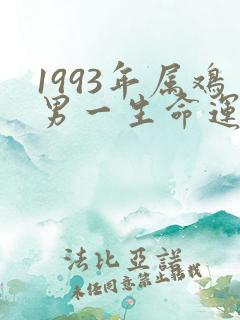 1993年属鸡
男一生命运
法比亚诺
未经同意禁止转载